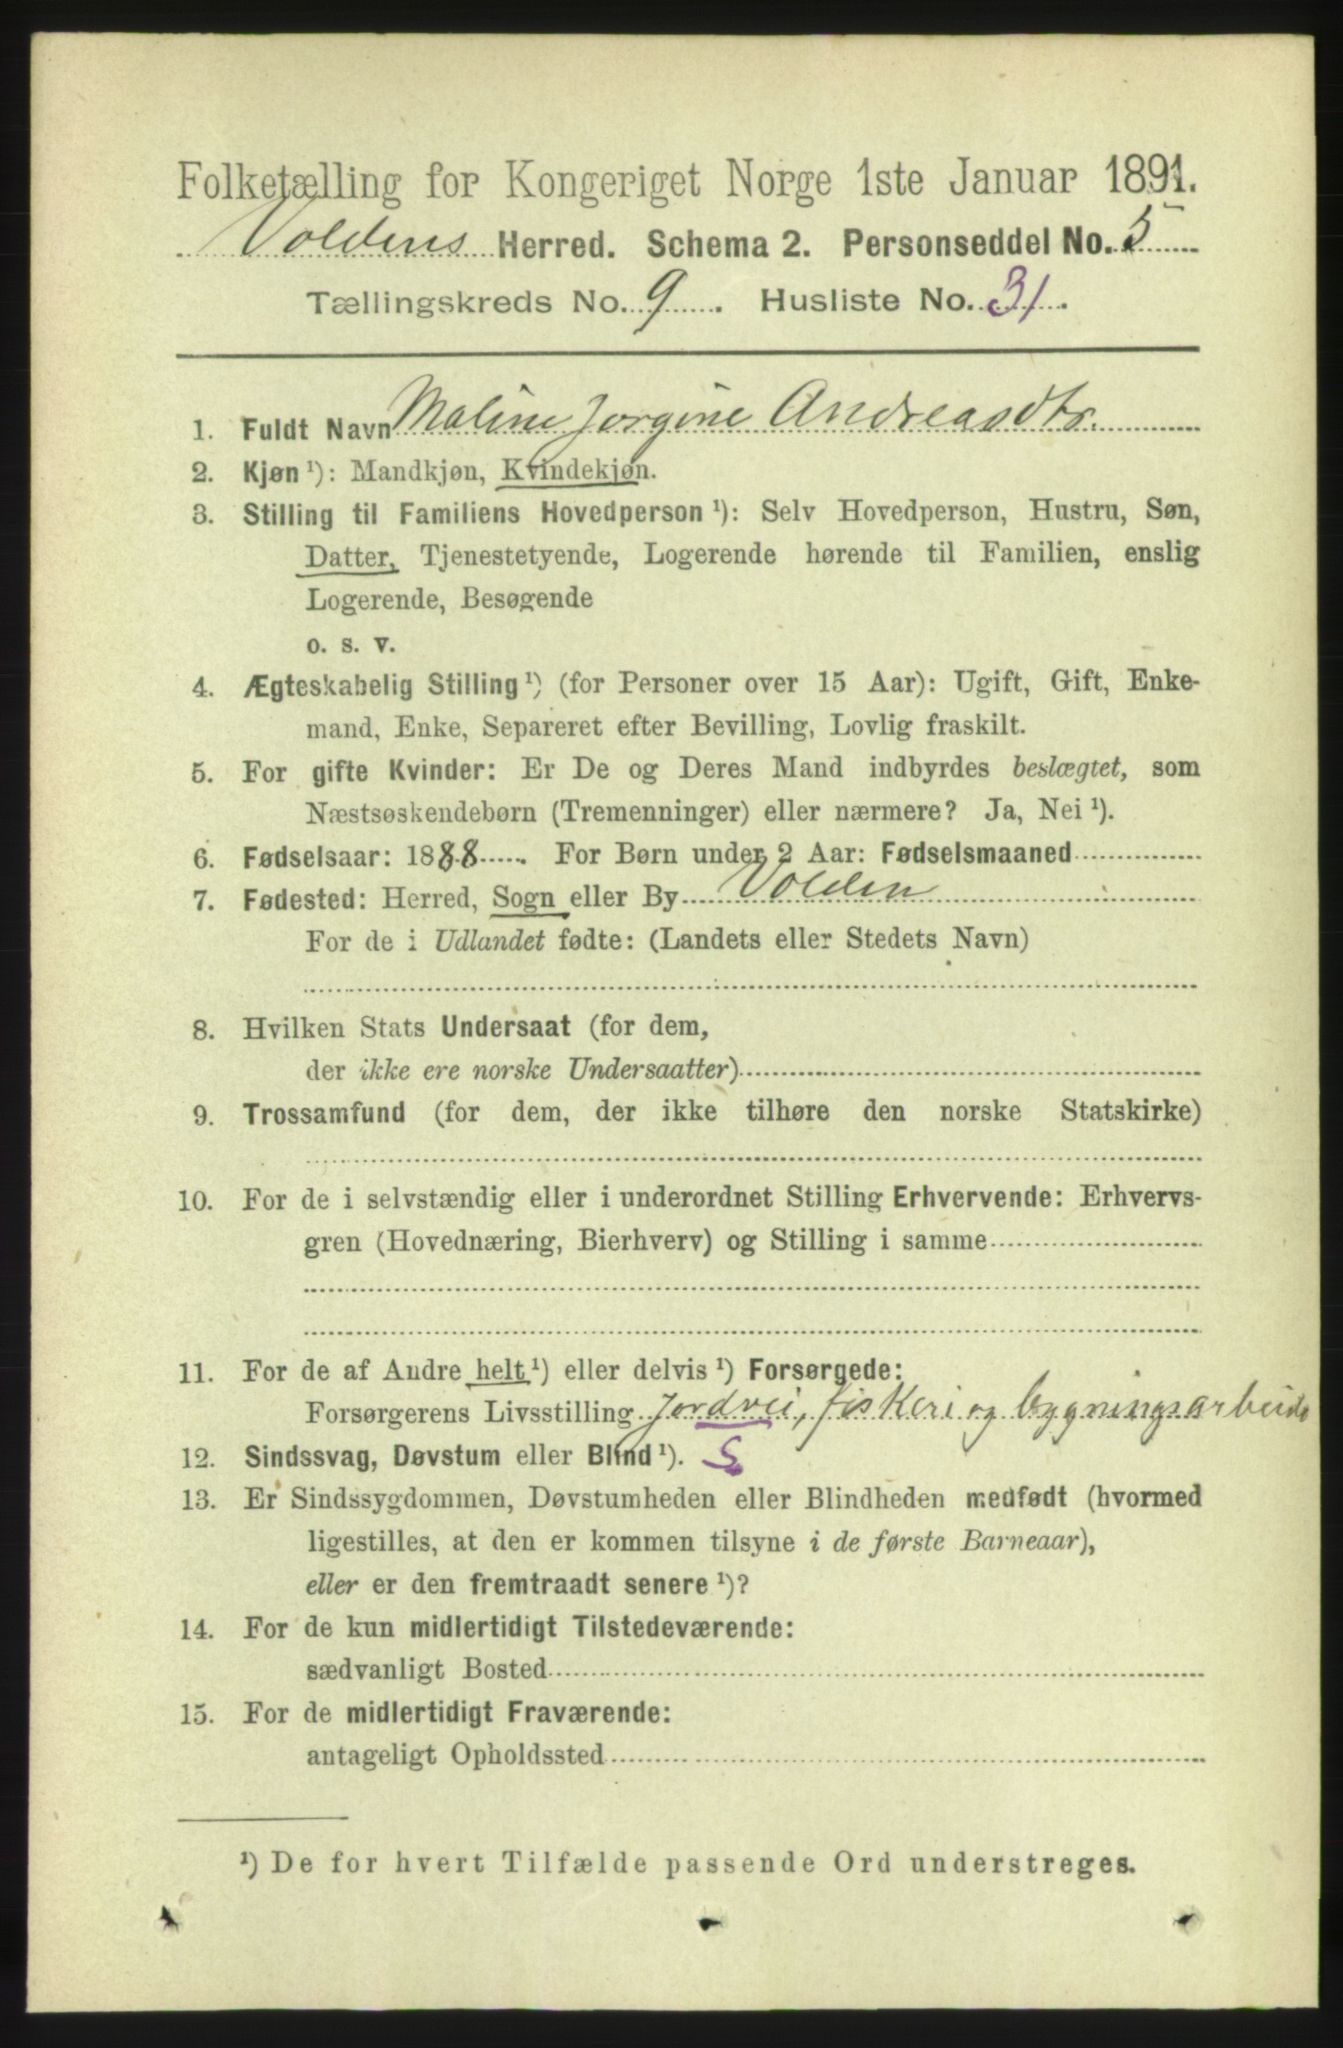 Folketælling for Kongeriget Norge 1ste Januar 1891.
Voldens Herred. Schema 2. Personseddel No. 5
Tællingskreds No. 9. Husliste No. 31.
1. Fuldt Navn Maline Jorgine Andreasdtr.
2. Kjøn ¹): Mandkjøn, Kvindekjøn.
3. Stilling til Familiens Hovedperson ¹): Selv Hovedperson, Hustru, Søn,
Datter, Tjenestetyende, Logerende hørende til Familien, enslig
Logerende, Besøgende
o. s. v.
4. Ægteskabelig Stilling ¹) (for Personer over 15 Aar): Ugift, Gift, Enke-
mand, Enke, Separeret efter Bevilling, Lovlig fraskilt.
5. For gifte Kvinder: Er De og Deres Mand indbyrdes beslægtet, som
Næstsøskendebørn (Tremenninger) eller nærmere? Ja, Nei ¹).
6. Fødselsaar: 1888. For Børn under 2 Aar: Fødselsmaaned
7. Fødested: Herred, Sogn eller By Volden
For de i Udlandet fødte: (Landets eller Stedets Navn)
8. Hvilken Stats Undersaat (for dem,
der ikke ere norske Undersaatter)
9. Trossamfund (for dem, der ikke tilhøre den norske Statskirke)
10. For de i selvstændig eller i underordnet Stilling Erhvervende: Erhvervs-
gren (Hovednæring, Bierhverv) og Stilling i samme
11. For de af Andre helt ¹) eller delvis ¹) Forsørgede:
Forsørgerens Livsstilling Jordvei, fiskeri og bygningsarbeide
12. Sindssvag, Døvstum eller Blind ¹). S
13. Er Sindssygdommen, Døvstumheden eller Blindheden medfødt (hvormed
ligestilles, at den er kommen tilsyne i de første Barneaar),
eller er den fremtraadt senere ¹)?
14. For de kun midlertidigt Tilstedeværende:
sædvanligt Bosted
15. For de midlertidigt Fraværende:
antageligt Opholdssted
¹) De for hvert Tilfælde passende Ord understreges.